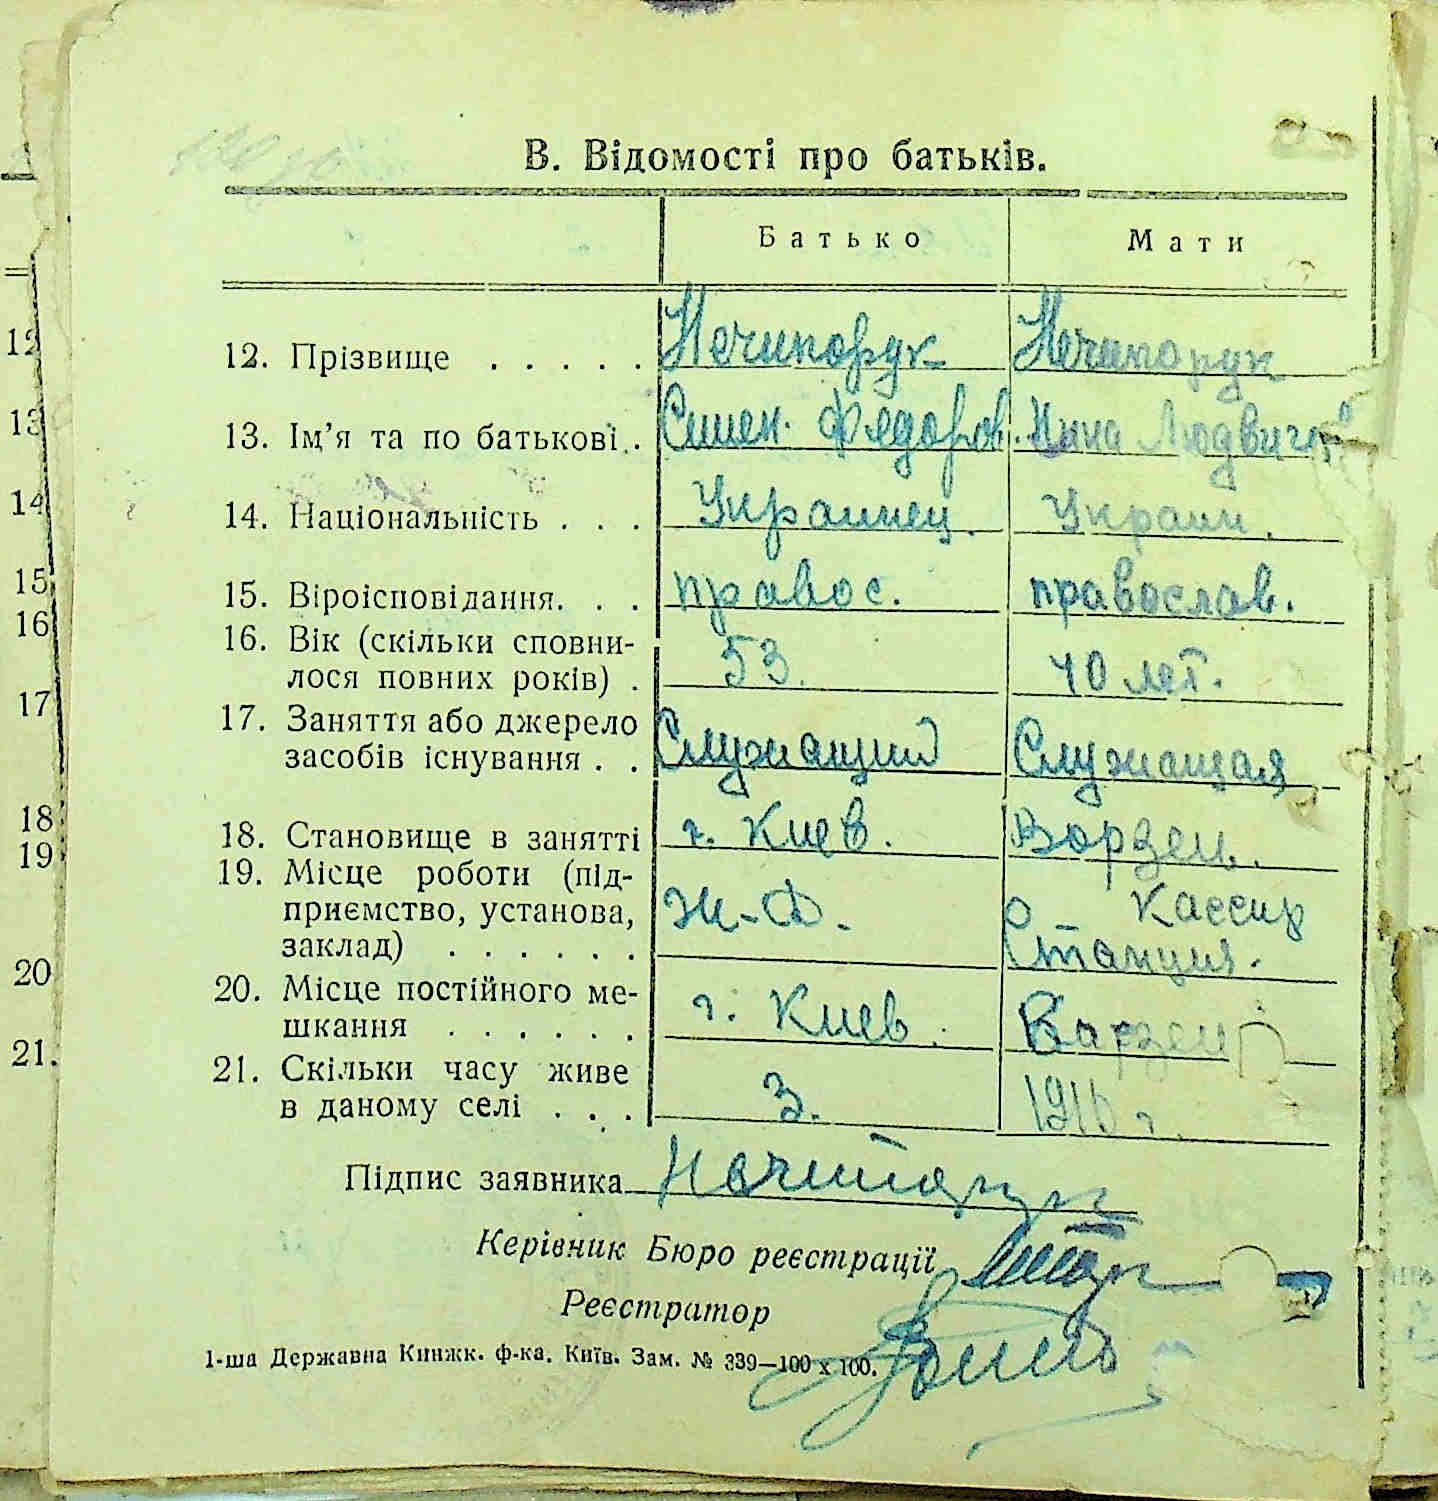 В. Відомості про батьків.
Батько Мати
12. Прізвище . . . . . Нечипорук Нечипорук
13. Ім'я та по батькові . . Симен. Федоров. Нина Людвиго
14. Національність . . . Украинец. Украин.
15. Віроісповідання. . . правос. православ.
16. Вік (скільки сповни-
лося повних років) . 53. 40 лет.
17. Заняття або джерело
засобів існування . . Служащий Служащая
18. Становище в занятті г. Киев. Ворзель.
19. Місце роботи (під-
приємство, установа, Ж-Д. Кассир
заклад) . . . . . . Станция.
20. Місце постійного ме-
шкання . . . . . . г. Киев. Ворзель
21. Скільки часу живе
в даному селі . . . 3. 1916 г.
Підпис заявника Нечипорук
Керівник Бюро реєстрації
Реєстратор
1-ша Державна Книжк. ф-ка. Київ. Зам. № 339—100 х 100.
12
13
14
15
16
17
18
19
20
21.